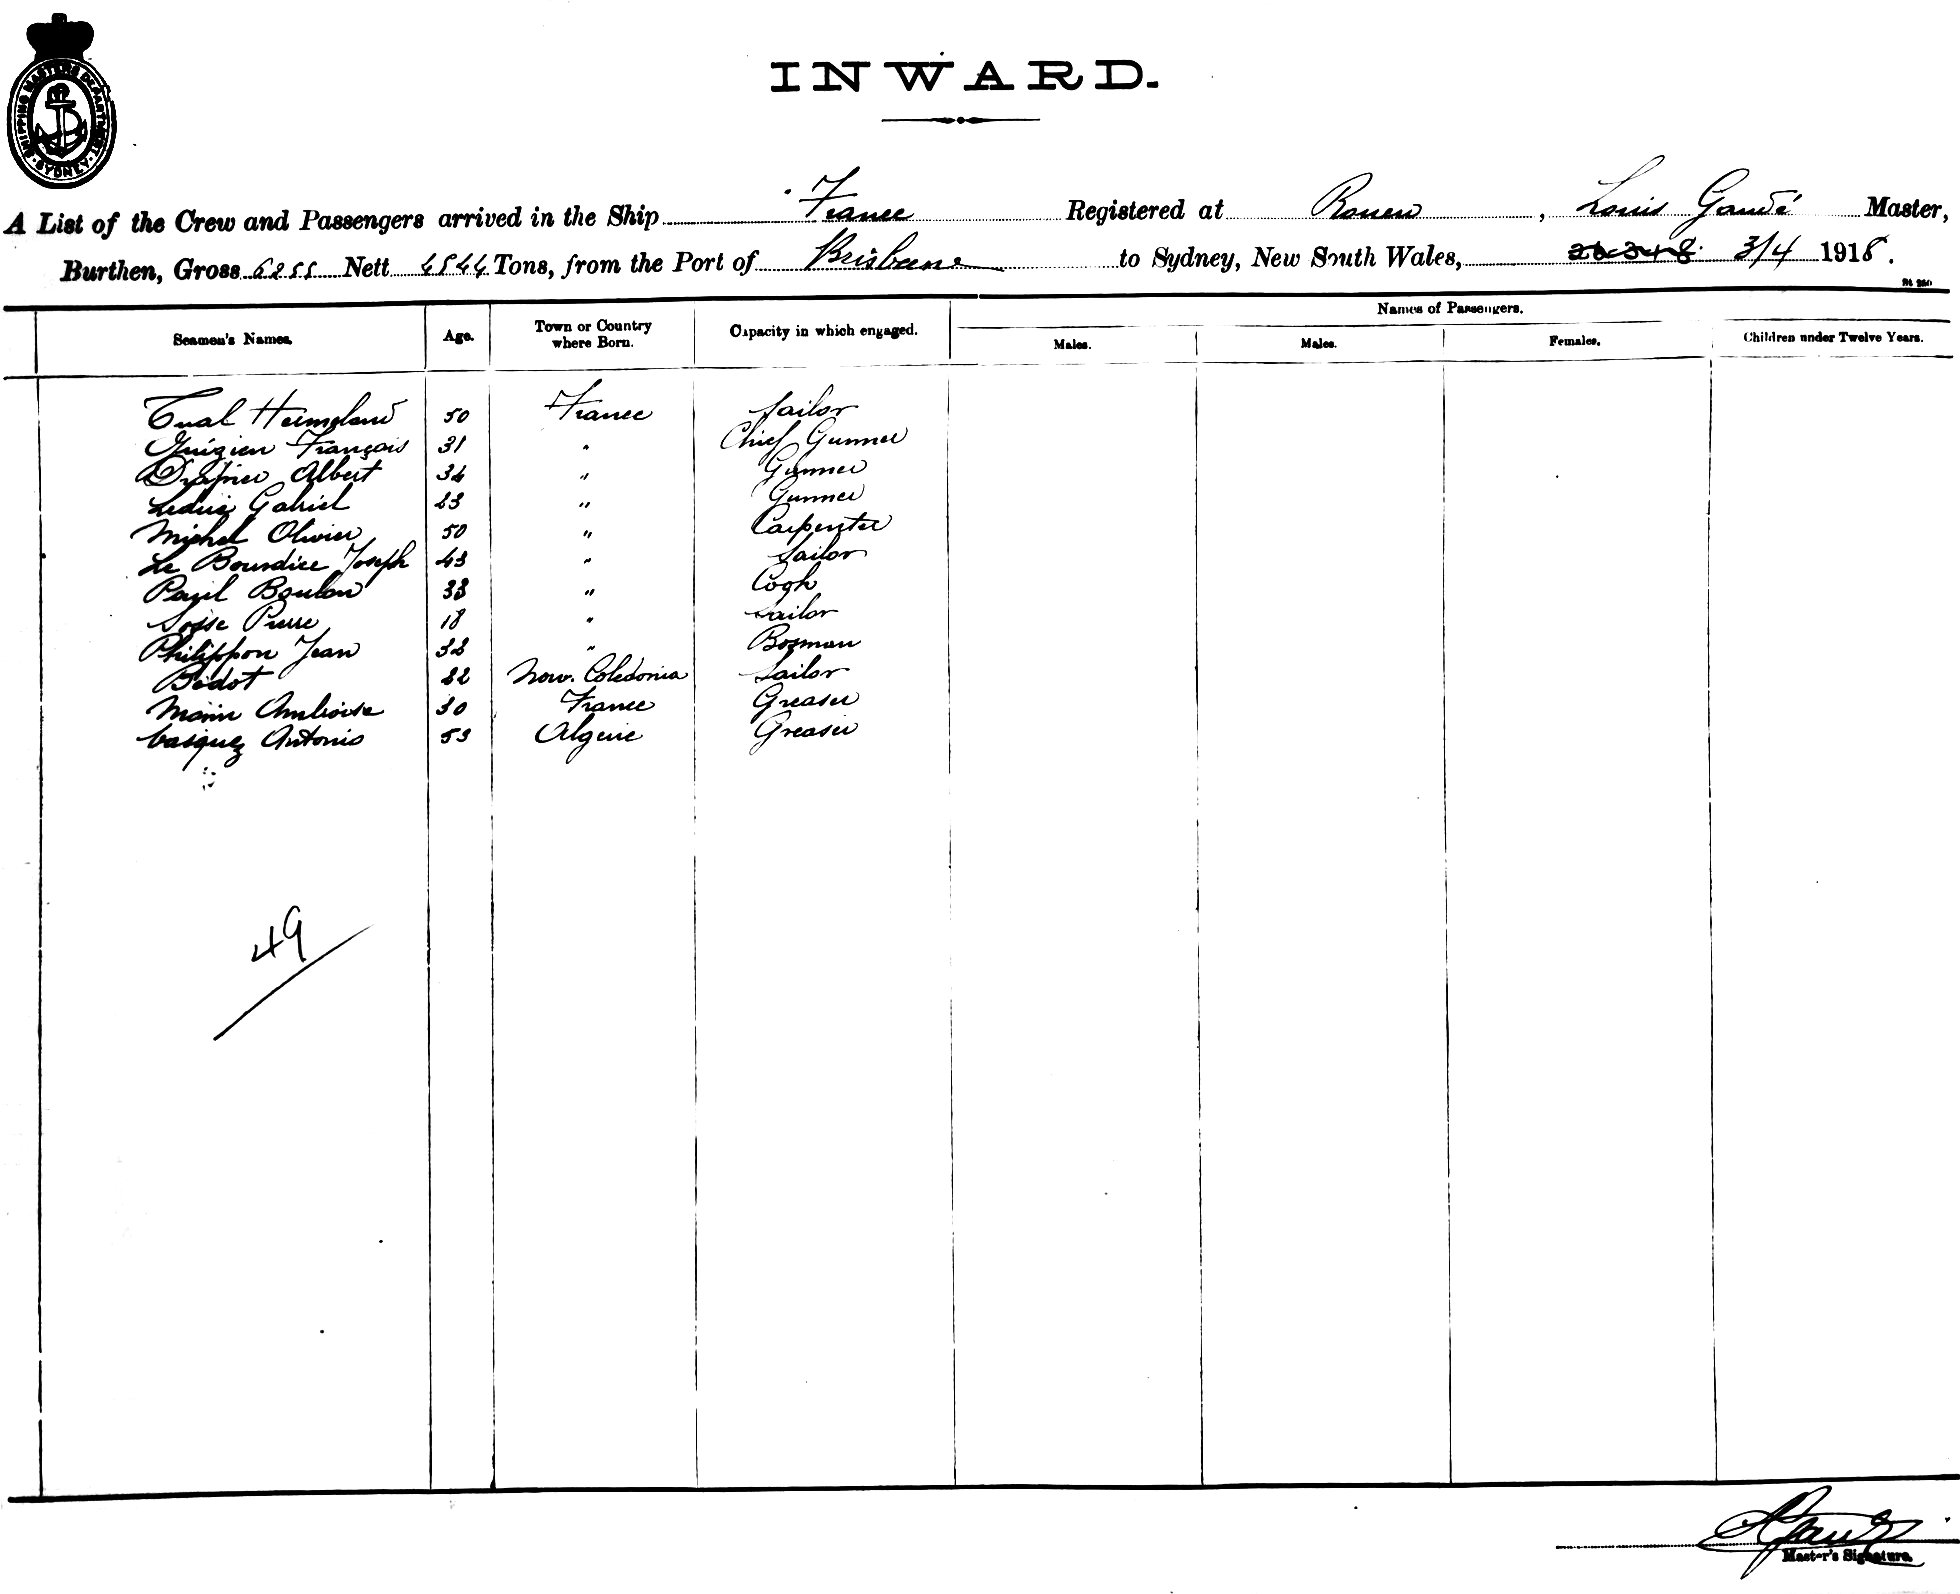 SHIPPING MASTERS DEPARTMENT · SYDNEY ·
INWARD.
A List of the Crew and Passengers arrived in the Ship France Registered at Rouen, Louis Gaudé Master,
Burthen, Gross 6255 Nett 4544 Tons, from the Port of Brisbane to Sydney, New South Wales, 3/4 1918.
Names of Passengers.
Seamen's Names. Age. Town or Country where Born. Capacity in which engaged. Males. Males. Females. Children under Twelve Years.
Tual 50 France Sailor
François 31 " Chief Gunner
Albert 34 " Gunner
Leduc Gabriel 23 " Gunner
Michel Olivier 50 " Carpenter
Le Bourdiec Joseph 43 " Sailor
Paul Boulon 33 " Cook
Sosse Pierre 18 " Sailor
Philippon Jean 32 " Bosman
Bodot 22 Now. Caledonia Sailor
Marin Ambroise 30 France Greaser
Vasquez Antonio 53 Algerie Greaser
49
Master's Signature.